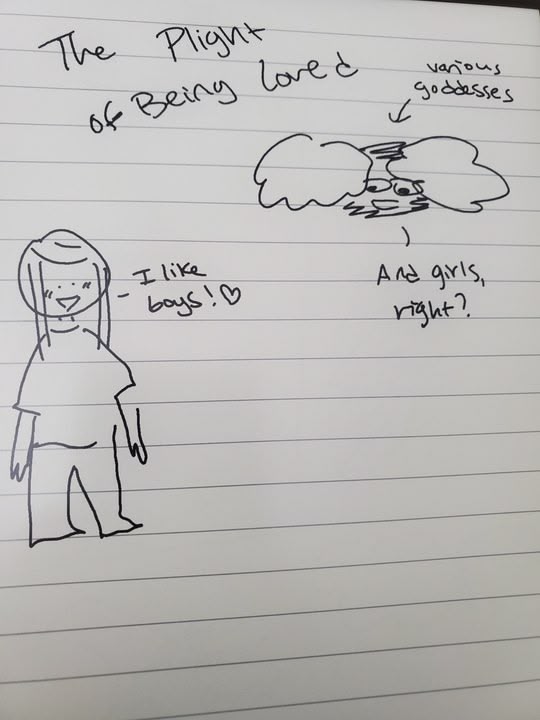 The Plight
of Being Loved
various
goddesses
I like
boys! ♡
And girls,
right?